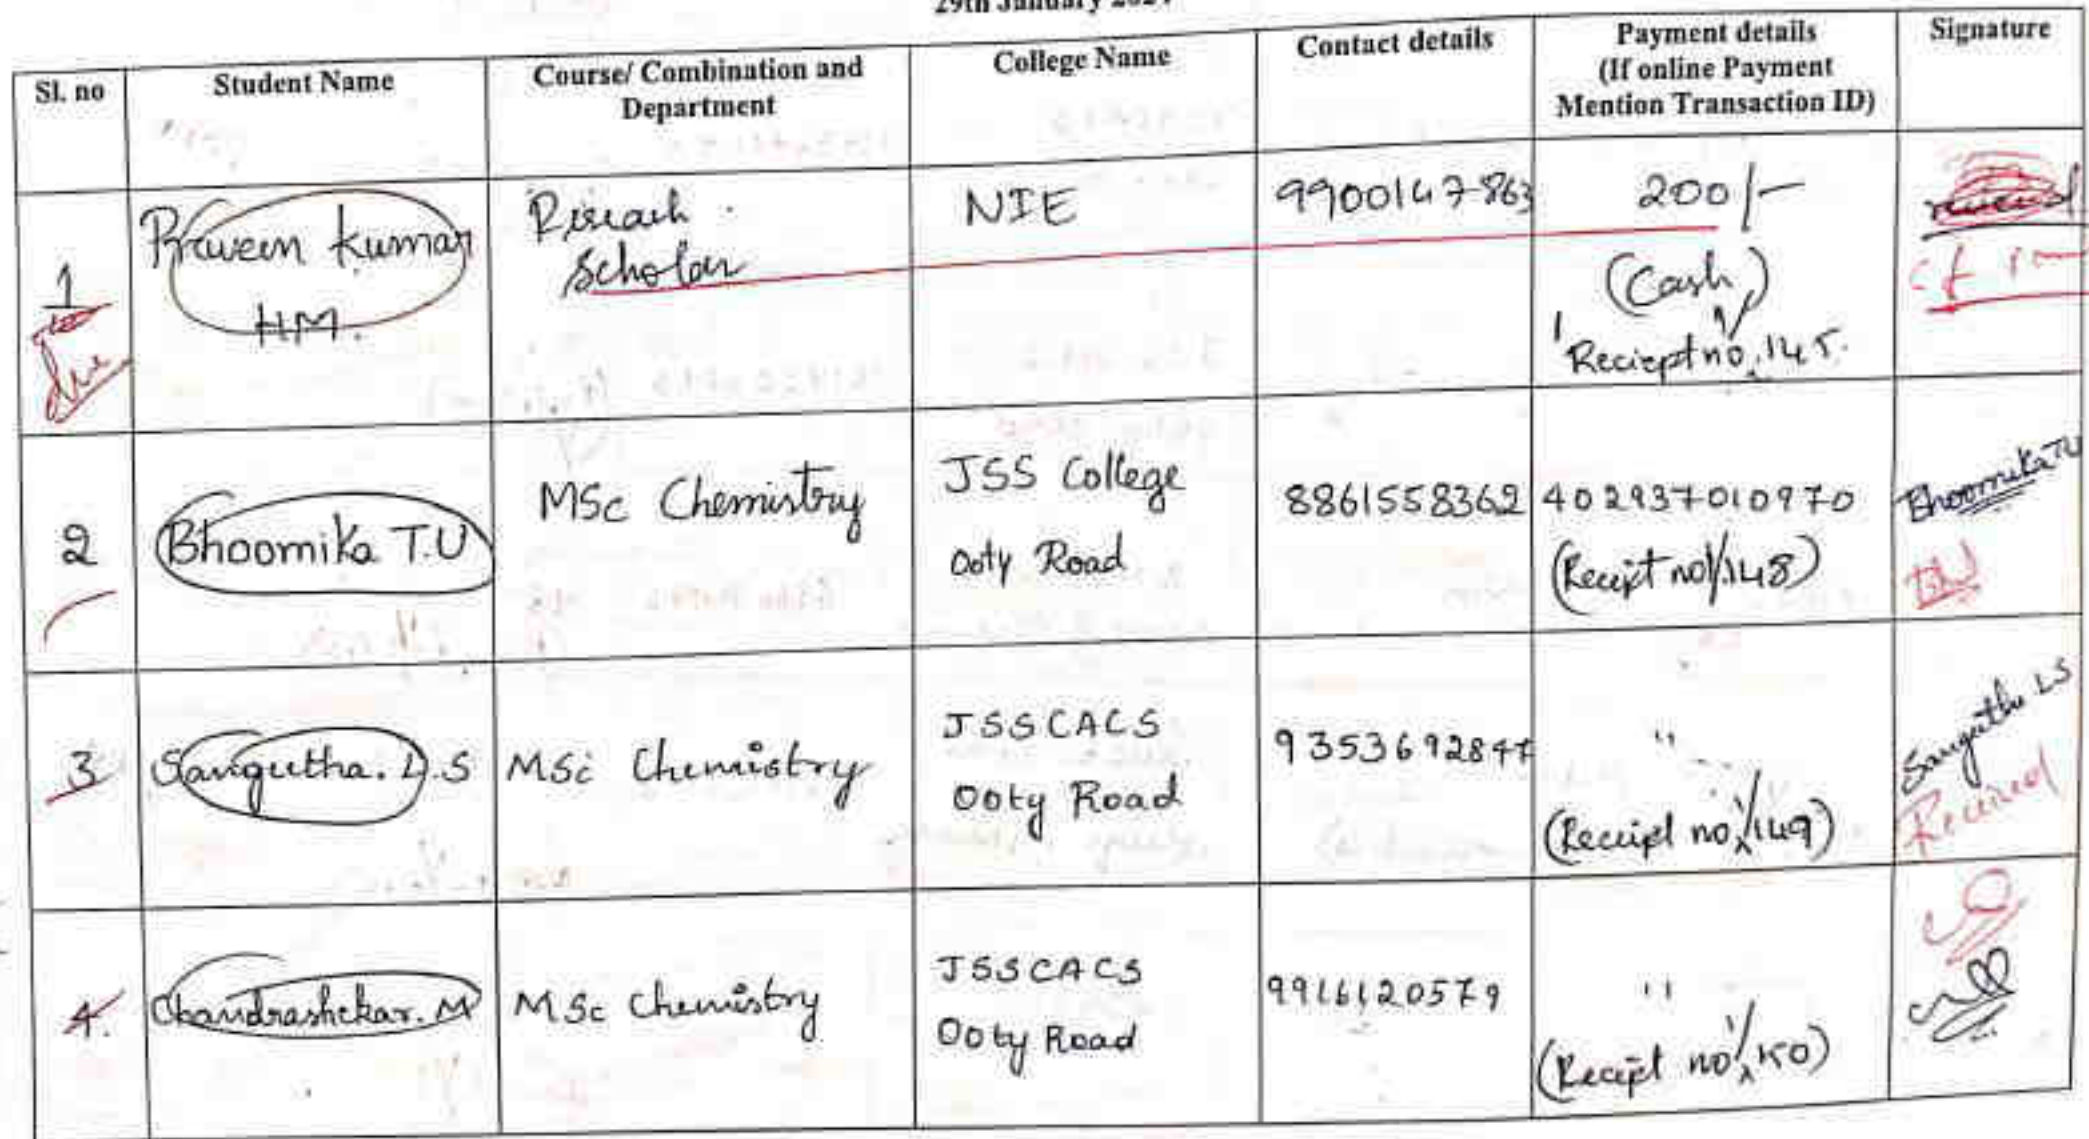 29th January 2024
Sl. no
Student Name
Course/ Combination and
Department
College Name
Contact details
Payment details
(If online Payment
Mention Transaction ID)
Signature
1
Praveen Kumar
H.M.
Reseach
Scholar
NIE
9900147863
200/-
(Cash)
Reciept no. 1/145.
2
Bhoomika T.U
MSc Chemistry
JSS College
Ooty Road
8861558362
402937010970
(Receipt no 1/148)
Bhoomika TU
3
Sangeetha. L.S
MSc Chemistry
JSSCACS
Ooty Road
9353692847
"
(Receipt no 1/149)
Sangeetha LS
Received
4.
Chandrashekar. M
MSc Chemistry
JSSCACS
Ooty Road
9916120579
"
(Receipt no 1/150)